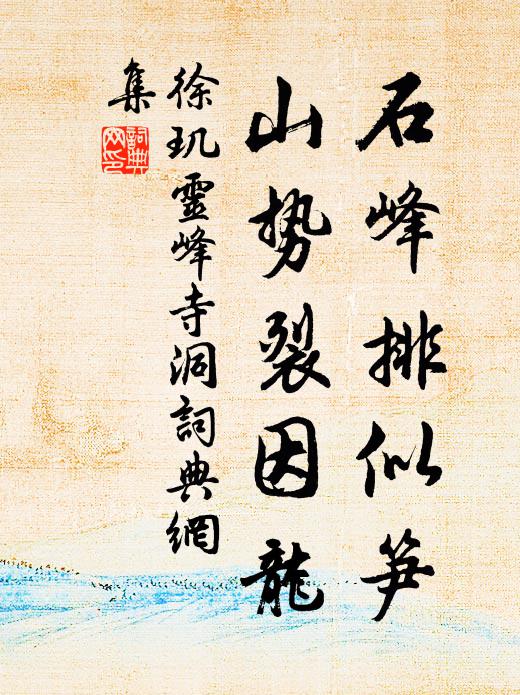 石峰排似笋
山势裂因龍
徐玑靈峰寺洞詞典網
集
詞典網印